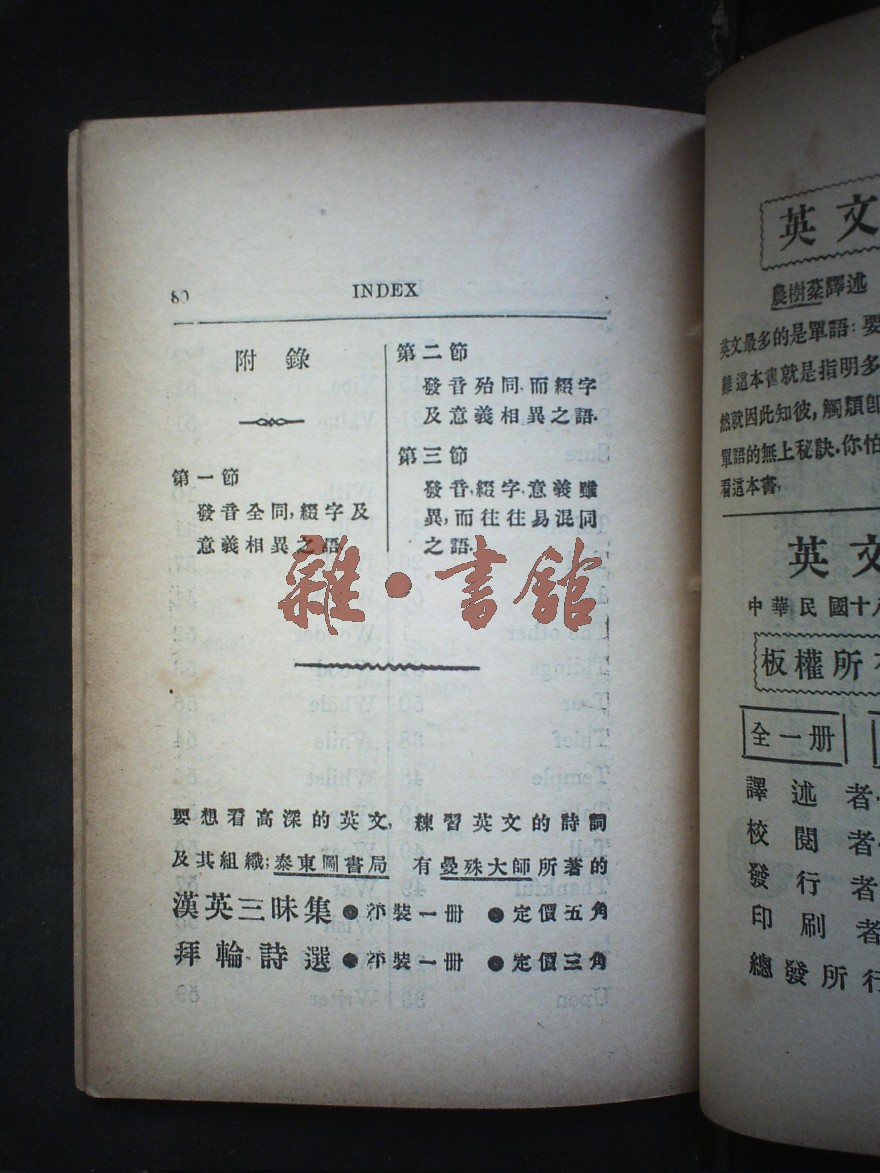 80 INDEX
附錄
第一節
發音全同,綴字及
意義相異之語
第二節
發音殆同,而綴字
及意義相異之語.
第三節
發音,綴字,意義雖
異,而往往易混同
之語.
雜·書館
要想看高深的英文, 練習英文的詩詞
及其組織;泰東圖書局 有曼殊大師所著的
漢英三昧集●洋裝一册 ●定價五角
拜輪詩選●洋裝一册 ●定價三角
英文
農樹棻譯述
英文最多的是單語:要
難這本書就是指明多
然就因此知彼,觸類卽
單語的無上秘訣.你怕
看這本書,
英文
中華民國十八
板權所有
全一册
譯述者
校閱者
發行者
印刷者
總發所行